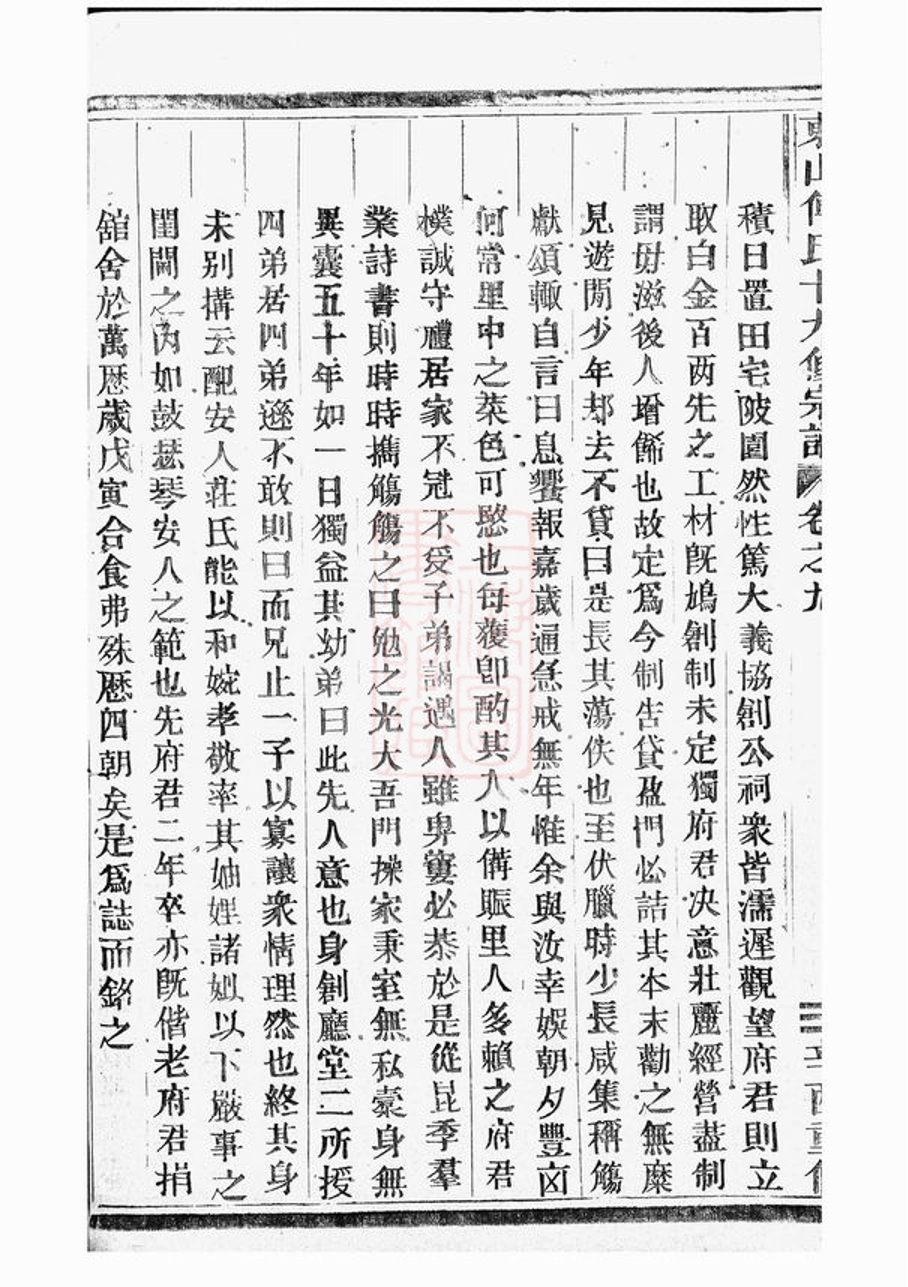 東山何氏十九修宗譜 卷之九 辛酉重修
積日置田宅陂園然性篤大義協創公祠衆皆濡遲觀望府君則立
取白金百两先之工材旣鳩創制未定獨府君决意壯麗經營盡制
謂毋滋後人增餙也故定爲今制告貸盈門必詰其本末勸之無糜
見遊閒少年却去不貸曰是長其蕩佚也至伏臘時少長咸集稱觴
獻頌輙自言曰息饗報嘉歲逼急戒無年惟余與汝幸娛朝夕豐卤
何常里中之菜色可愍也每穫卽酌其入以備賑里人多賴之府君
樸誠守禮居家不冠不受子弟謁遇人雖卑窶必恭於是從昆季羣
業詩書則時時擕觴觴之曰勉之光大吾門操家秉室無私橐身無
異囊五十年如一日獨益其幼弟曰此先人意也身創廳堂二所援
四弟居四弟遜不敢則曰而兄止一子以寡讓衆情理然也終其身
未别搆云配安人莊氏能以和婉孝敬率其妯娌諸姒以下嚴事之
閨閫之內如鼓瑟琴安人之範也先府君二年卒亦旣偕老府君捐
舘舍於萬歷歲戊寅合食弗殊歷四朝矣是爲誌而銘之